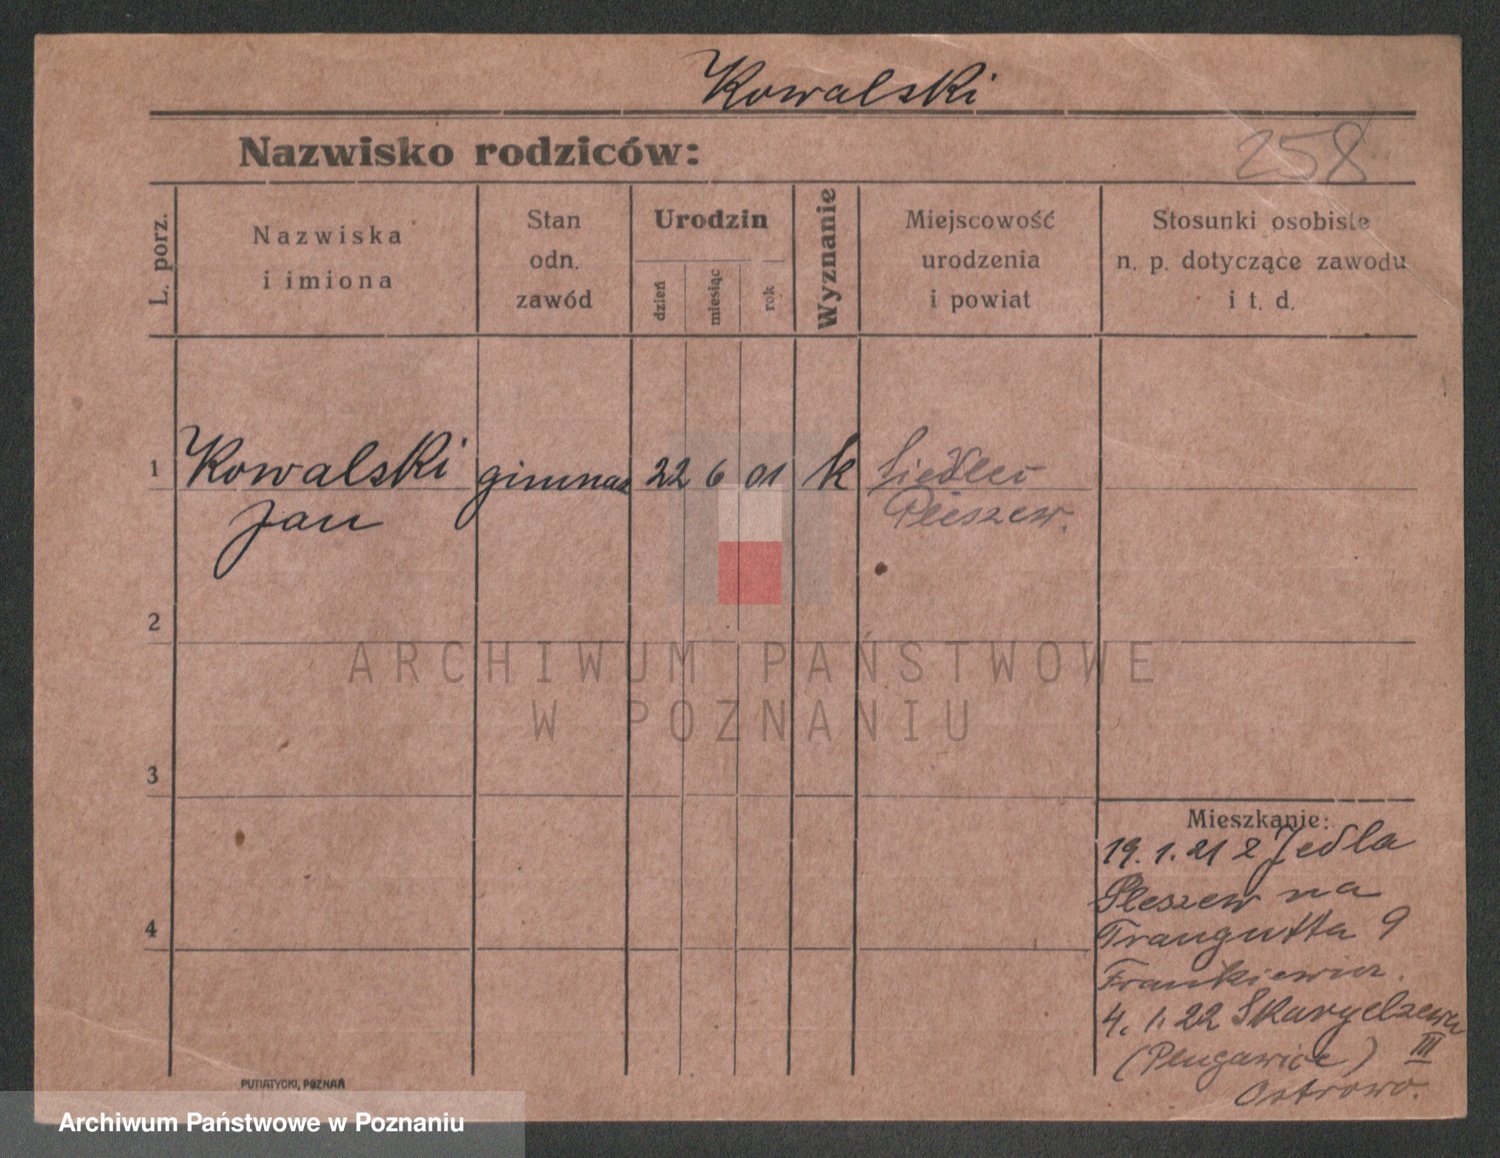 Kowalski
Nazwisko rodziców:
258
L. porz.
Nazwiska
i imiona
Stan
odn.
zawód
Urodzin
dzień
miesiąc
rok
Wyznanie
Miejscowość
urodzenia
i powiat
Stosunki osobiste
n. p. dotyczące zawodu
i t. d.
1
Kowalski gimnaz 22 6 01 k
Jan
Pleszew.
2
ARCHIWUM PAŃSTWOWE
W POZNANIU
3
Mieszkanie:
19. 1. 21 z Jedla
Pleszew na
4
Traugutta 9
Frankiewicz.
4. 1. 22
(Plugawice) III
Ostrowo.
PUTIATYCKI, POZNAŃ
Archiwum Państwowe w Poznaniu